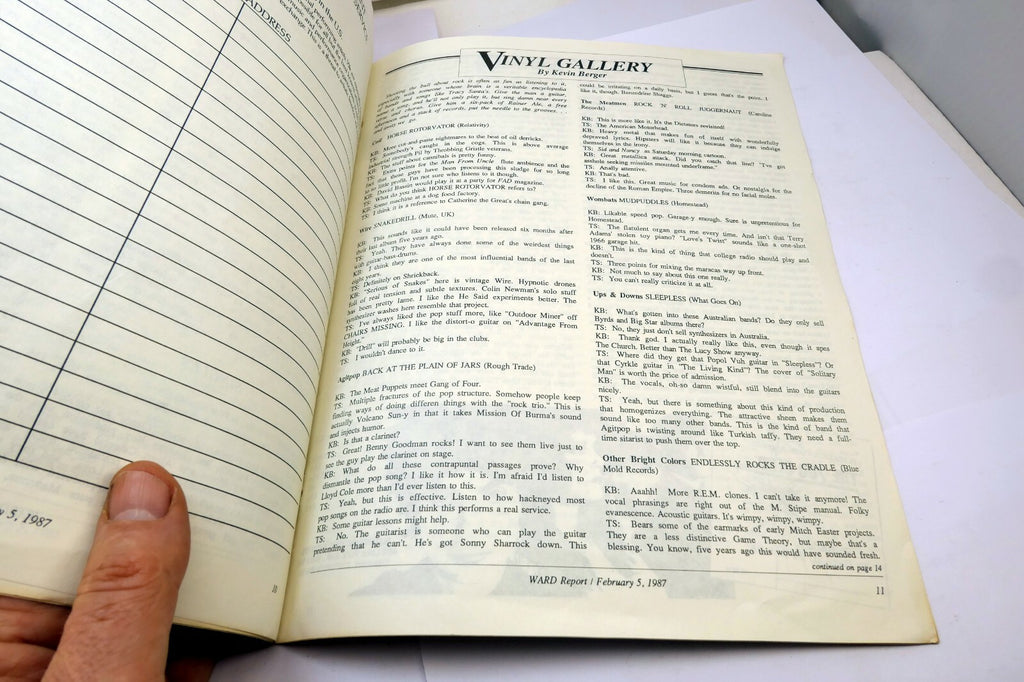 ADDRESS
in the U.S.
exchange. This is a
y 5, 1987
10
VINYL GALLERY
By Kevin Berger
Shooting the bull about rock is often as fun as listening to it,
especially with someone whose brain is a veritable encyclopedia
of bands and songs like Tracy Santa's. Give the man a guitar,
name a song, and he'll not only play it, but sing damn near every
verse and chorus. Give him a six-pack of Rainer Ale, a free
afternoon and a stack of records, put the needle to the grooves. . .
and away we go.
Coil HORSE ROTORVATOR (Relativity)
KB: More cut-and-paste nightmares to the beat of oil derricks.
TS: Somebody's caught in the cogs. This is above average
industrial strength Pil by Throbbing Gristle veterans.
KB: The stuff about cannibals is pretty funny.
TS: Extra points for the Man From Uncle flute ambience and the
fact that these guys have been processing this sludge for so long
to so little profit. I'm not sure who listens to it though.
KB: David Bassin would play it at a party for FAD magazine.
TS: What do you think HORSE ROTORVATOR refers to?
KB: Some machine at a dog food factory.
TS: I think it is a reference to Catherine the Great's chain gang.
Wire SNAKEDRILL (Mute, UK)
KB: This sounds like it could have been released six months after
their last album five years ago.
TS: Yeah. They have always done some of the weirdest things
with guitar-bass-drums.
KB: I think they are one of the most influential bands of the last
eight years.
TS: Definitely on Shriekback.
KB: "Serious of Snakes" here is vintage Wire. Hypnotic drones
full of real tension and subtle textures. Colin Newman's solo stuff
has been pretty lame. I like the He Said experiments better. The
synthesizer washes here resemble that project.
TS: I've always liked the pop stuff more, like "Outdoor Miner" off
CHAIRS MISSING. I like the distort-o guitar on "Advantage From
Height."
KB: "Drill" will probably be big in the clubs.
TS: I wouldn't dance to it.
Agitpop BACK AT THE PLAIN OF JARS (Rough Trade)
KB: The Meat Puppets meet Gang of Four.
TS: Multiple fractures of the pop structure. Somehow people keep
finding ways of doing different things with the "rock trio." This is
actually Volcano Sun-y in that it takes Mission Of Burma's sound
and injects humor.
KB: Is that a clarinet?
TS: Great! Benny Goodman rocks! I want to see them live just to
see the guy play the clarinet on stage.
KB: What do all these contrapuntal passages prove? Why
dismantle the pop song? I like it how it is. I'm afraid I'd listen to
Lloyd Cole more than I'd ever listen to this.
TS: Yeah, but this is effective. Listen to how hackneyed most
pop songs on the radio are. I think this performs a real service.
KB: Some guitar lessons might help.
TS: No. The guitarist is someone who can play the guitar
pretending that he can't. He's got Sonny Sharrock down. This
could be irritating on a daily basis, but I guess that's the price. I
like it, though. Benzedrine Shaggs.
The Meatmen ROCK 'N' ROLL JUGGERNAUT (Caroline
Records)
KB: This is more like it. It's the Dictators revisited!
TS: The American Motorhead.
KB: Heavy metal that makes fun of itself with wonderfully
depraved lyrics. Hipsters will like it because they can indulge
themselves in the irony.
TS: Sid and Nancy as Saturday morning cartoon.
KB: Great metallica attack. Did you catch that line? "I've got
asshole seeking missiles mounted underframe."
TS: Anally attentive.
KB: That's bad.
TS: I like this. Great music for condom ads. Or nostalgia for the
decline of the Roman Empire. Three demerits for no facial moles.
Wombats MUDPUDDLES (Homestead)
KB: Likable speed pop. Garage-y enough. Sure is unpretentious for
Homestead.
TS: The flatulent organ gets me every time. And isn't that Terry
Adams' stolen toy piano? "Love's Twist" sounds like a one-shot
1966 garage hit.
KB: This is the kind of thing that college radio should play and
doesn't.
TS: Three points for mixing the maracas way up front.
KB: Not much to say about this one really.
TS: You can't really criticize it at all.
Ups & Downs SLEEPLESS (What Goes On)
KB: What's gotten into these Australian bands? Do they only sell
Byrds and Big Star albums there?
TS: No, they just don't sell synthesizers in Australia,
KB: Thank god. I actually really like this, even though it apes
The Church. Better than The Lucy Show anyway.
TS: Where did they get that Popol Vuh guitar in "Sleepless"? Or
that Cyrkle guitar in "The Living Kind"? The cover of "Solitary
Man" is worth the price of admission.
KB: The vocals, oh-so damn wistful, still blend into the guitars
nicely.
TS: Yeah, but there is something about this kind of production
that homogenizes everything. The attractive sheen makes them
sound like too many other bands. This is the kind of band that
Agitpop is twisting around like Turkish taffy. They need a full-
time sitarist to push them over the top.
Other Bright Colors ENDLESSLY ROCKS THE CRADLE (Blue
Mold Records)
KB: Aaahh! More R.E.M. clones. I can't take it anymore! The
vocal phrasings are right out of the M. Stipe manual. Folky
evanescence. Acoustic guitars. It's wimpy, wimpy, wimpy.
TS: Bears some of the earmarks of early Mitch Easter projects.
They are a less distinctive Game Theory, but maybe that's a
blessing. You know, five years ago this would have sounded fresh.
continued on page 14
WARD Report / February 5, 1987
11